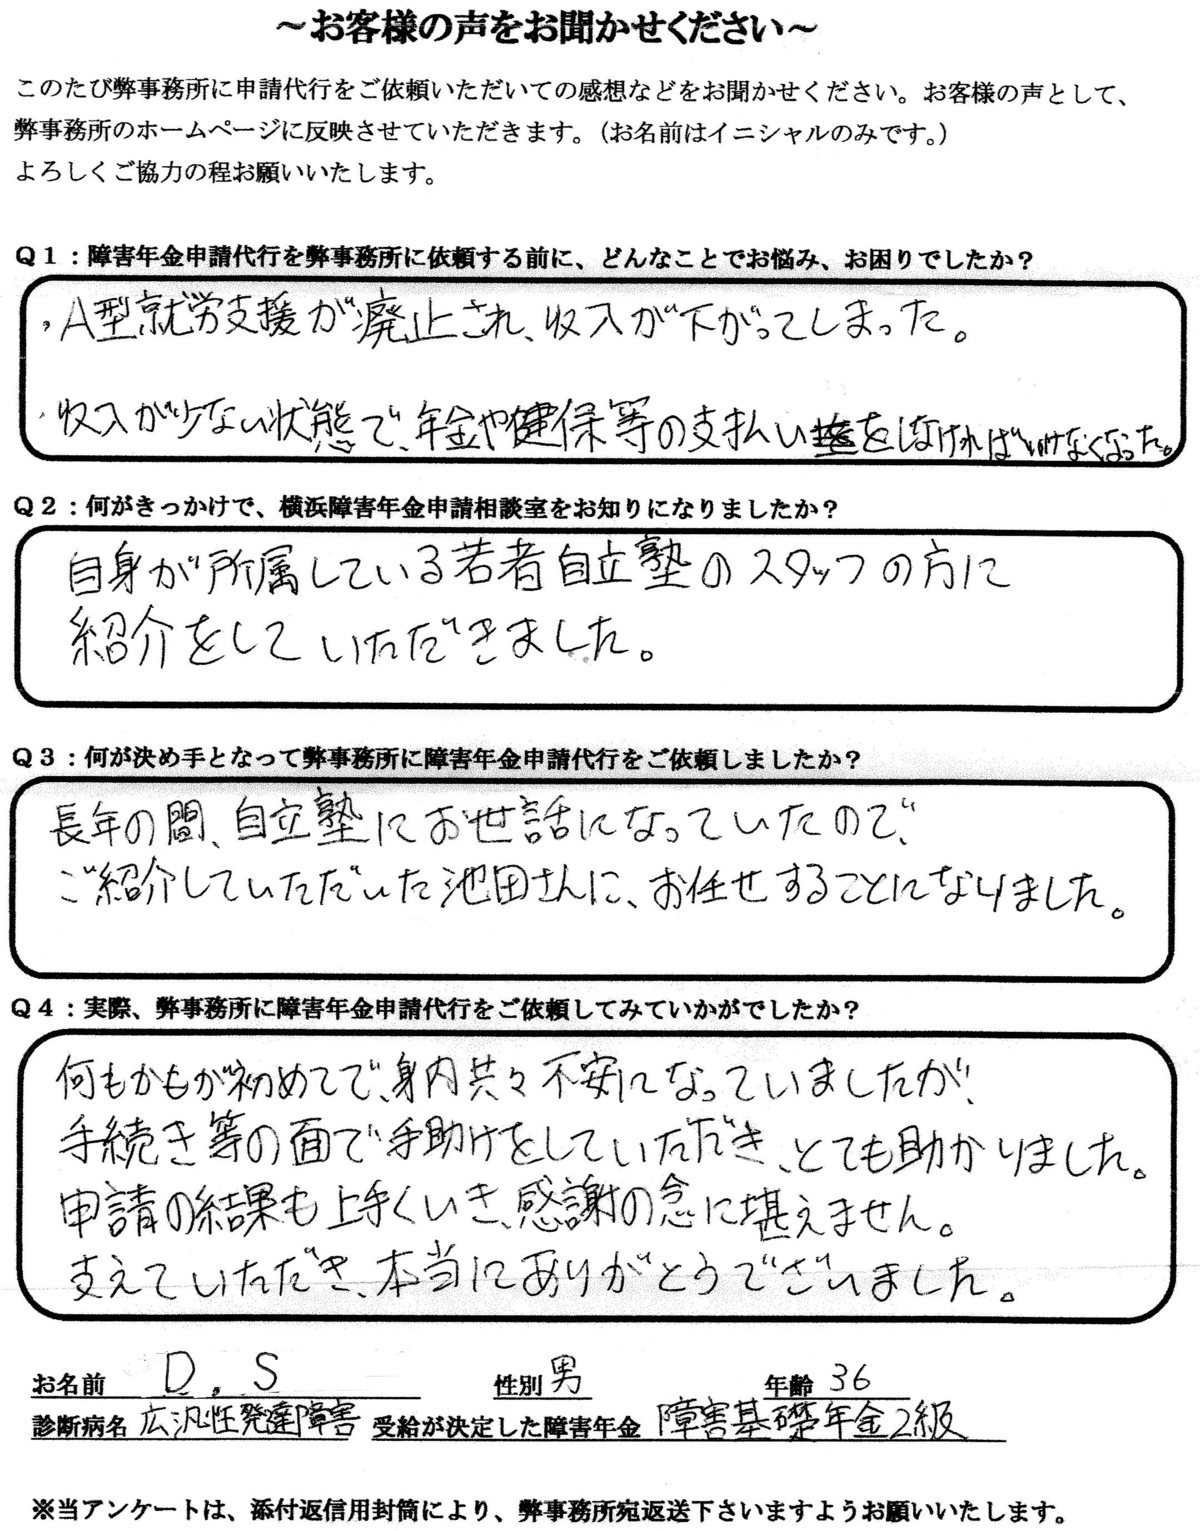 ～お客様の声をお聞かせください～
このたび弊事務所に申請代行をご依頼いただいての感想などをお聞かせください。お客様の声として、
弊事務所のホームページに反映させていただきます。（お名前はイニシャルのみです。）
よろしくご協力の程お願いいたします。
Ｑ１：障害年金申請代行を弊事務所に依頼する前に、どんなことでお悩み、お困りでしたか？
・A型就労支援が廃止され、収入が下がってしまった。
・収入が少ない状態で、年金や健保等の支払いをしなければいけなくなった。
Ｑ２：何がきっかけで、横浜障害年金申請相談室をお知りになりましたか？
自身が所属している若者自立塾のスタッフの方に
紹介をしていただきました。
Ｑ３：何が決め手となって弊事務所に障害年金申請代行をご依頼しましたか？
長年の間、自立塾にお世話になっていたので、
ご紹介していただいた池田さんに、お任せすることになりました。
Ｑ４：実際、弊事務所に障害年金申請代行をご依頼してみていかがでしたか？
何もかもが初めてで、身内共々不安になっていましたが、
手続き等の面で手助けをしていただき、とても助かりました。
申請の結果も上手くいき、感謝の念に堪えません。
支えていただき、本当にありがとうございました。
お名前 D.S 性別 男 年齢 36
診断病名 広汎性発達障害 受給が決定した障害年金 障害基礎年金2級
※当アンケートは、添付返信用封筒により、弊事務所宛返送下さいますようお願いいたします。